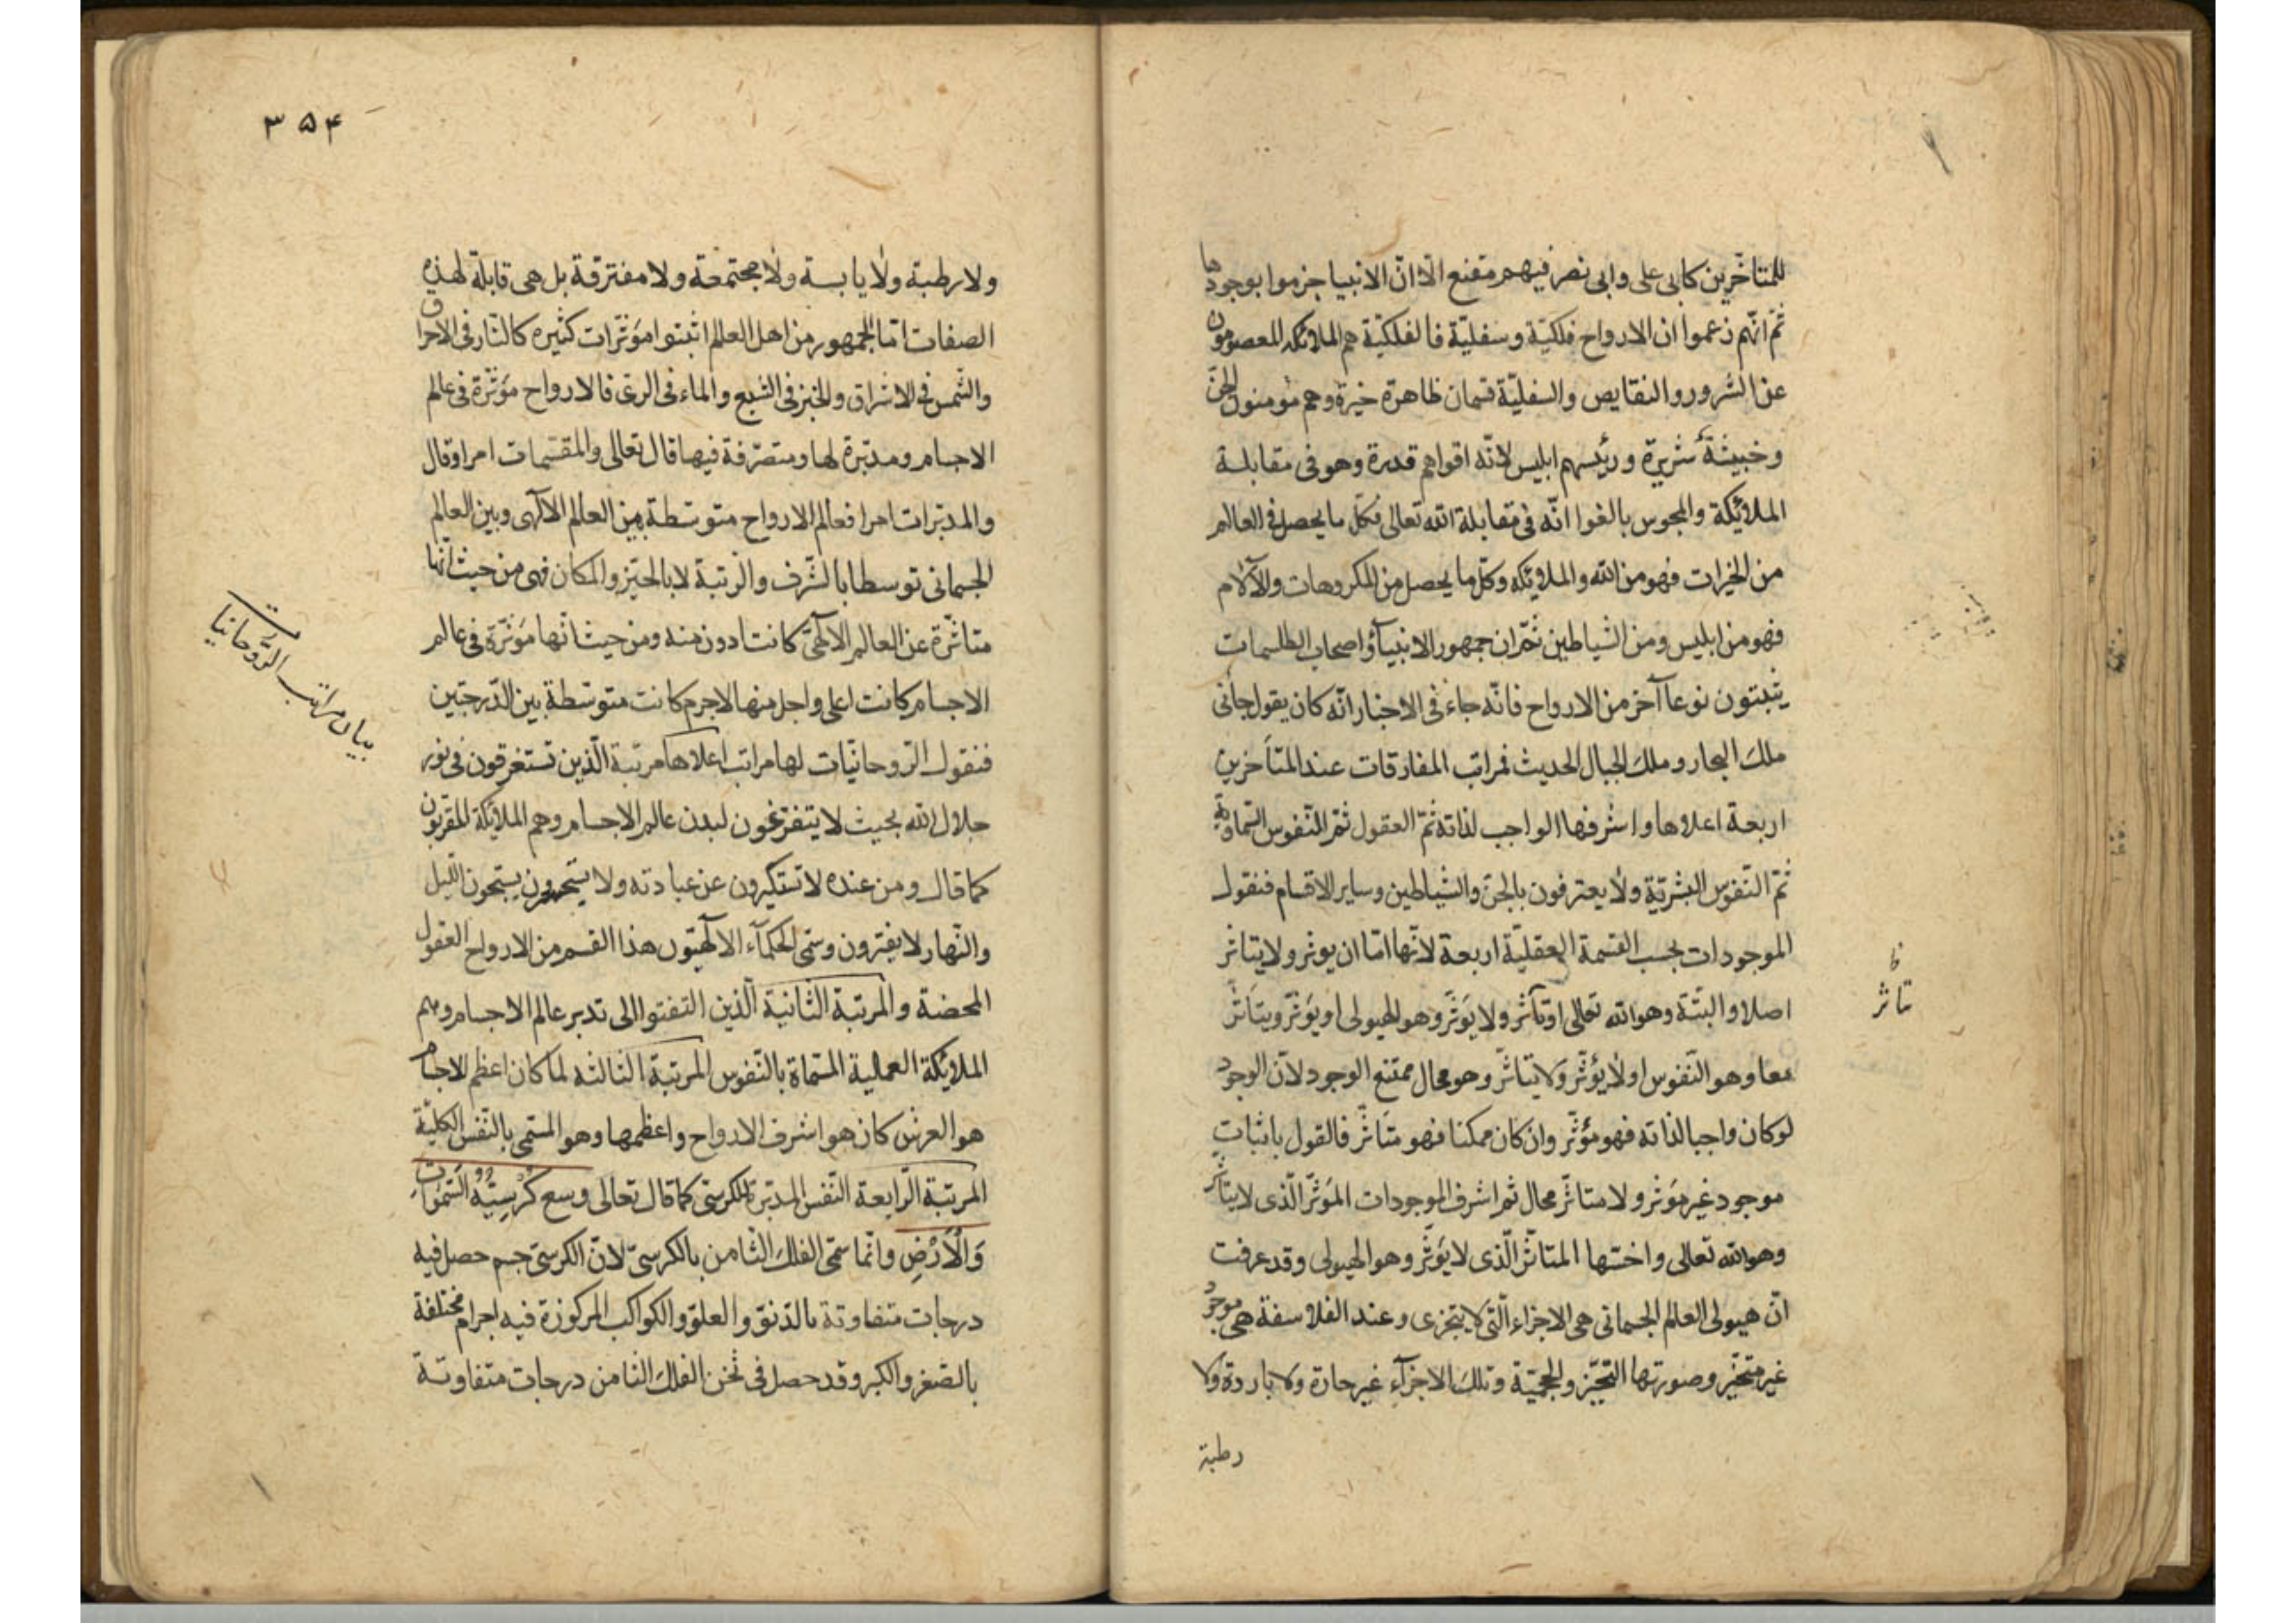 للمتاخّرين كابى على وابى نصر فيهم مقنع الّا انّ الانبيا جزموا بوجودها
ثمّ انّهم زعموا ان الارواح فلكيّة وسفليّة فالفلكيّة هم الملائكه المعصومون
عن الشرور والنقايص والسفليّة قسمان ظاهرة خيرة وهم مؤمنون الجنّ
وخبيثة شريرة ورئيسهم ابليس لانّه اقواهم قدرة وهو فى مقابلة
الملائيكة والمجوس بالغوا انّه فى مقابلة الله تعالى فكل ما يحصل فى العالم
من الخيرات فهو من الله والملائيكه وكلّ ما يحصل من المكروهات والآلام
فهو من ابليس ومن الشياطين ثمّ ان جمهور الانبيآؤ اصحاب الطلسمات
يثبتون نوعا آخر من الارواح فانّه جاء فى الاخبار انّه كان يقول جأنى
ملك البحار وملك الجبال الحديث فمراتب المفارقات عند المتأخرين
اربعة اعلاها واشرفها الواجب لذاته ثمّ العقول ثمّ النّفوس السّماويّة
ثمّ النّفوس البشريّة ولا يعترفون بالجن والشياطين وساير الاقسام فنقول
الموجودات بحسب القسمة العقليّة اربعة لانّها امّا ان يوثر ولا يتاثر
اصلا والبتّة وهو الله تعالى او تاثر ولا يؤثّر وهو الهيولى او يؤثّر ويتاثّر
معا وهو النّفوس او لا يؤثّر ولا يتاثّر وهو محال ممتنع الوجود لانّ الوجود
لو كان واجبا لذاته فهو مؤثّر وان كان ممكنا فهو متاثّر فالقول باثبات
موجود غير مؤثر ولا متاثّر محال ثم اشرف الموجودات المؤثّر الّذى لا يتأثر
وهو الله تعالى واخسّها المتاثّر الّذى لا يؤثّر وهو الهيولى وقد عرفت
انّ هيولى العالم الجسمانى هى الاجزاء الّتى لا يتجزى وعند الفلاسفة هى موجود
غير متحيّز وصورتها التحيّز والحجميّة وتلك الاجزآء غير حارة ولا باردة ولا
رطبة
تا
تاثر
٣٥۴
ولا رطبة ولا يابسة ولا مجتمعة ولا مفترقة بل هى قابلة لهذه
الصفات امّا الجمهور من اهل العالم اثبتوا مؤثّرات كثيره كالنّار فى الاحراق
والشّمس فى الاشراق والخبز فى الشبع والماء فى الرى فالارواح مؤثّرة فى عالم
الاجسام ومدبّرة لها ومتصرّفة فيها قال تعالى والمقسّمات امرا وقال
والمدبّرات امرا فعالم الارواح متوسّطة بين العالم الآلهى وبين العالم
الجسمانى توسطا بالشّرف والرتبة لا بالحيّز والمكان فهى من حيث انّها
متاثّرة عن العالم الالهىّ كانت ادون منه ومن حيث انّها مؤثّرة فى عالم
الاجسام كانت اعلى واجل منها لاجرم كانت متوسّطة بين الدّرجتين
فنقول الرّوحانيّات لها مراتب اعلاها مرتبة الّذين تستغرقون فى نور
جلال الله بحيث لا يتفرّغون لبدن عالم الاجسام وهم الملائيكة المقرّبون
كما قال ومن عنده لا تستكبرون عن عبادته ولا يستحسرون يسبّحون اللّيل
والنّهار لا يفترون وسمّى الحكمآء الآلهيّون هذا القسم من الارواح العقول
المحضة والمرتبة الثّانية الّذين التفتوا الى تدبر عالم الاجسام وهم
الملائيكة العملية المسّماة بالنّفوس المرتبة الثالثه لما كان اعظم الاجسام
هو العرش كان هو اشرف الارواح واعظمها وهو المسمّى بالنّفس الكليّة
المرتبة الرّابعة النّفس المدبّرة للكرسىّ كما قال تعالى وسع كُرْسِيُّهُ السَّمٰوٰاتِ
وَالْأَرْضِ وانّما سمّى الفلك الثّامن بالكرسىّ لانّ الكرسىّ جسم حصل فيه
درجات متفاوتة بالدّنوّ والعلوّ والكواكب المركوزة فيه اجرام مختلفة
بالصّغر والكبر وقد حصل فى ثخن الفلك الثامن درجات متفاوتة
بيان مراتب الرّوحانيات